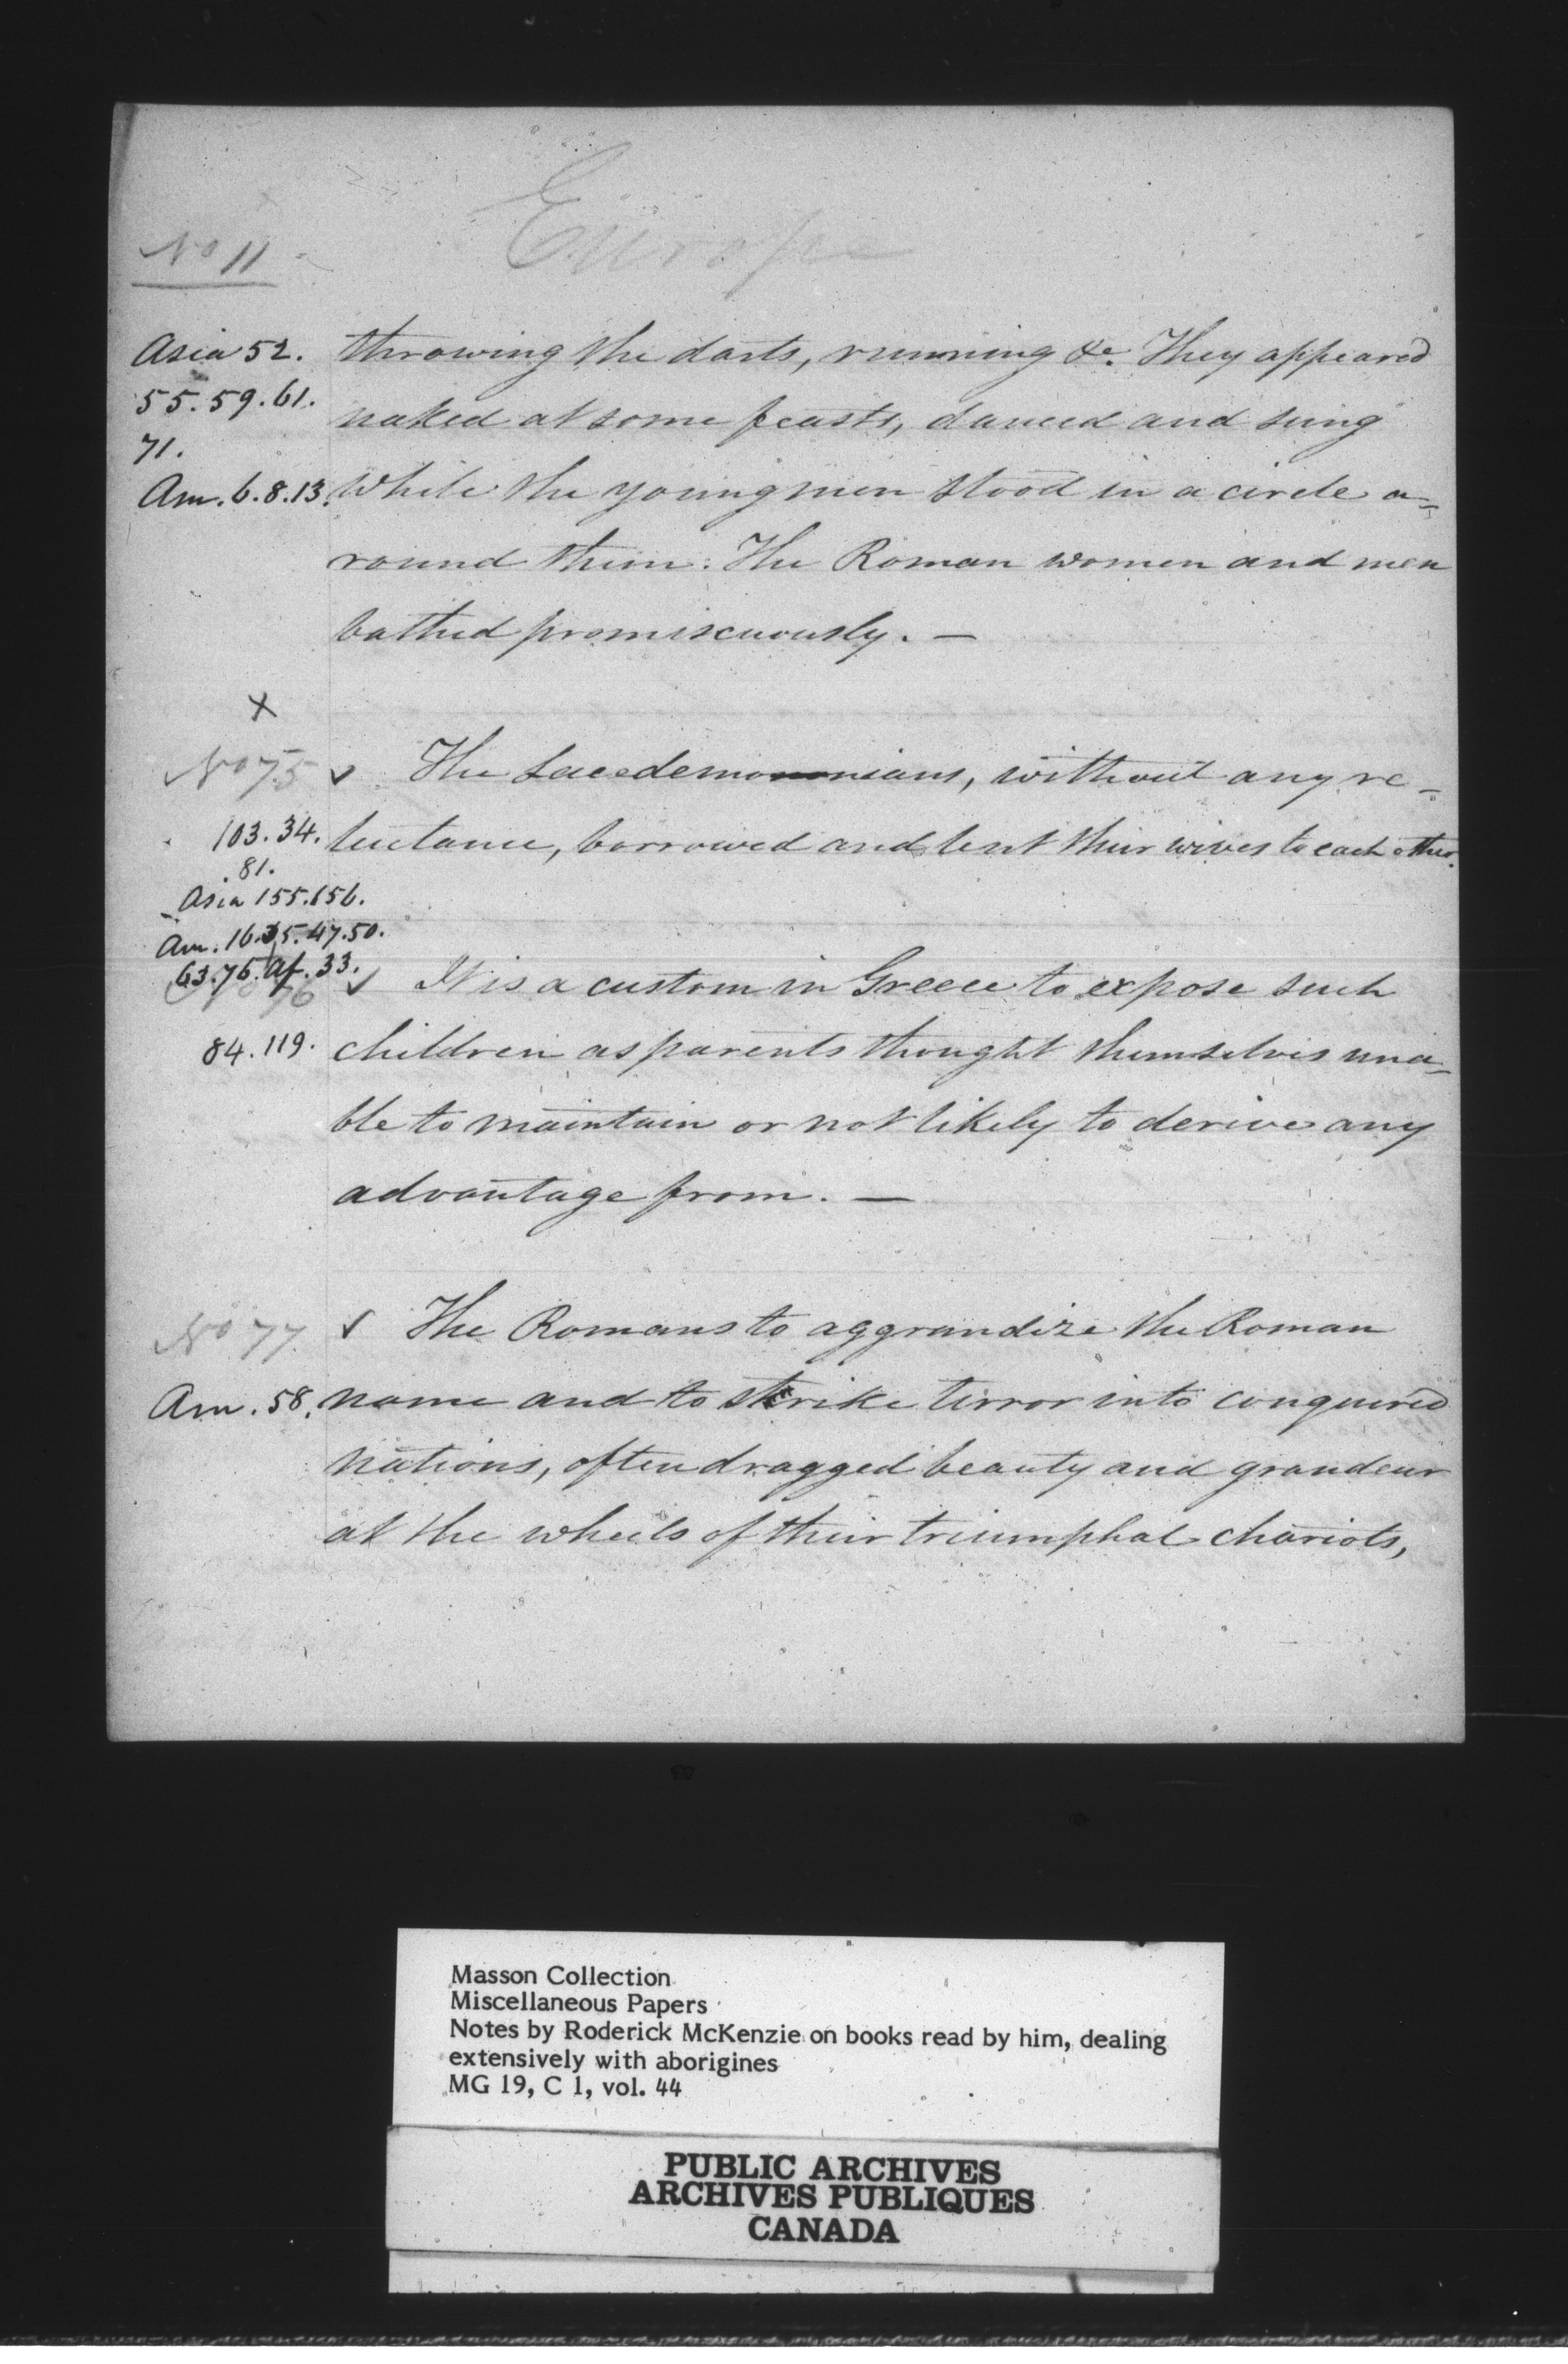 Europe
No 11
Asia 52.
55. 59. 61.
71.
Am. 6. 8. 13.
throwing the darts, running &c. They appeared
naked at some feasts, danced and sung
while the young men stood in a circle a-
round them. The Roman women and men
bathed promiscuously. —
x
No 75
103. 34.
. 81.
Asia 155. 156.
Am. 16. 35. 47. 50.
63. 76. Af. 33.
✓ The Lacedemonians, without any re-
luctance, borrowed and lent their wives to each other.
No 76
84. 119.
✓ It is a custom in Greece to expose such
children as parents thought themselves una-
ble to maintain or not likely to derive any
advantage from. —
No 77.
Am. 58.
✓ The Romans to aggrandize the Roman
name and to strike terror into conquered
nations, often dragged beauty and grandeur
at the wheels of their triumphal chariots,
Masson Collection
Miscellaneous Papers
Notes by Roderick McKenzie on books read by him, dealing
extensively with aborigines
MG 19, C 1, vol. 44
PUBLIC ARCHIVES
ARCHIVES PUBLIQUES
CANADA